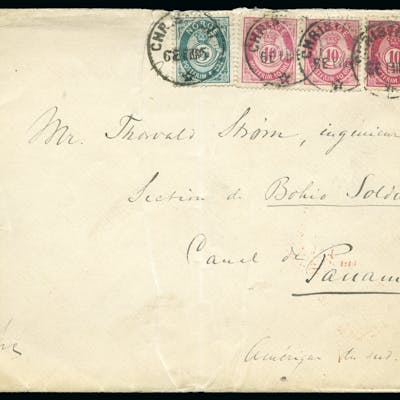 NORGE 10 10 10
CHRISTI
Mr. Thorvald Strøm, ingenieur
Section de Bohio Solda
Canal de
Panam
Amérique du sud.